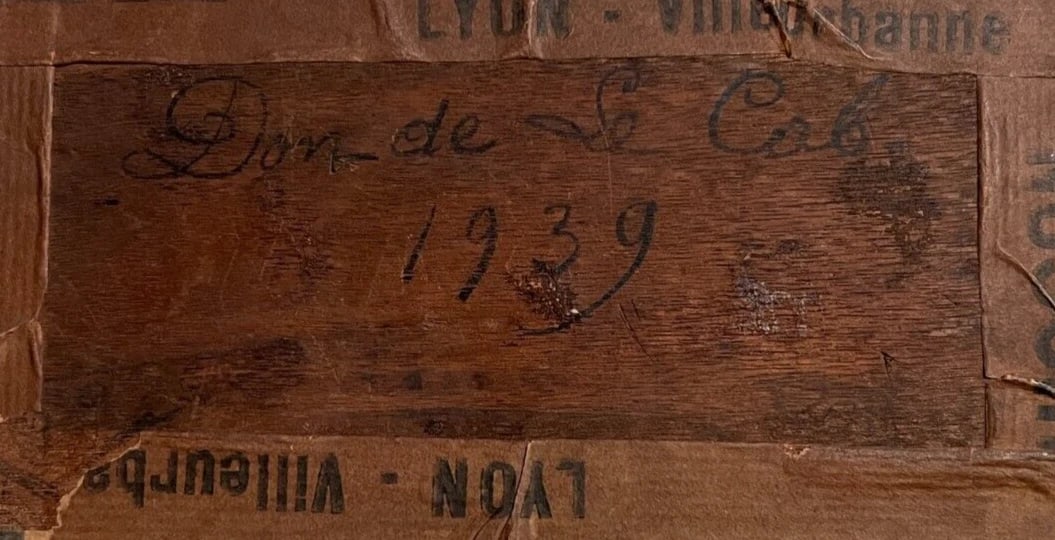 LYON - Villeurbanne
Don de Le Corb.
1939
LYON - Villeurba